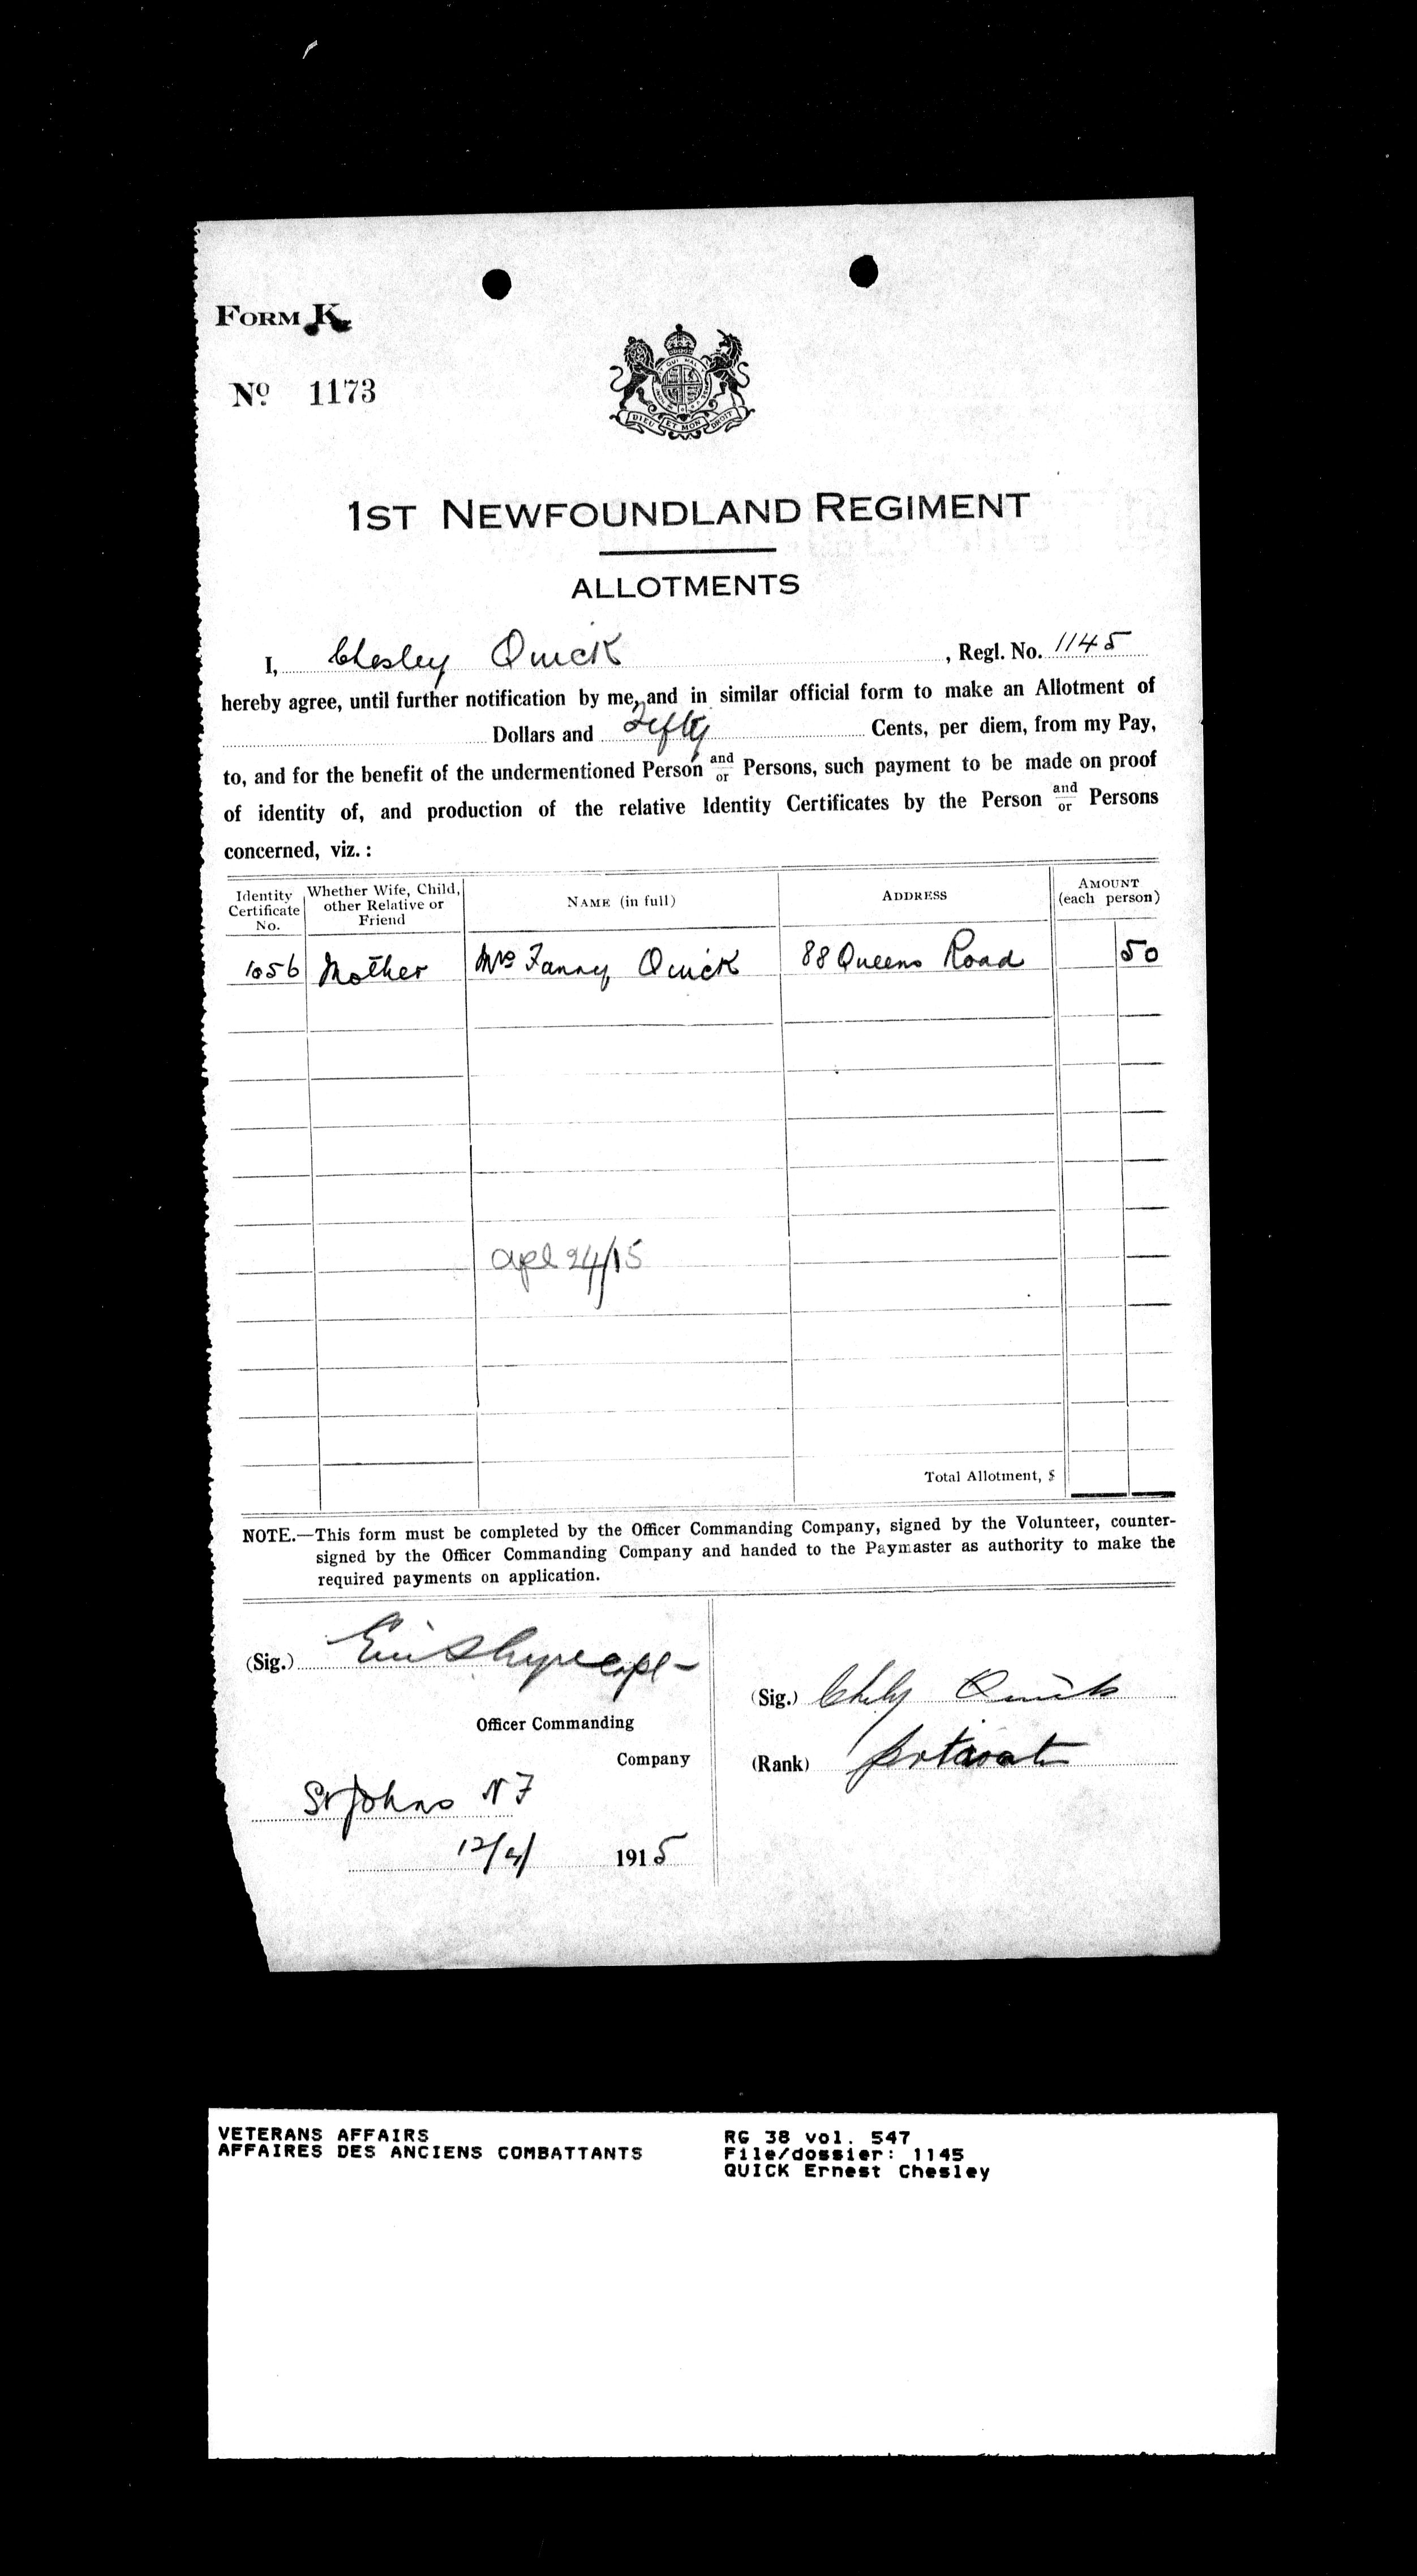 FORM K.
Nº 1173
QUI MAL
DIEU ET MON DROIT
1ST NEWFOUNDLAND REGIMENT
ALLOTMENTS
I, Chesley Quick, Regl. No. 1145
hereby agree, until further notification by me, and in similar official form to make an Allotment of
Dollars and Fifty Cents, per diem, from my Pay,
to, and for the benefit of the undermentioned Person and/or Persons, such payment to be made on proof
of identity of, and production of the relative Identity Certificates by the Person and/or Persons
concerned, viz. :
Identity Certificate No. | Whether Wife, Child, other Relative or Friend | NAME (in full) | ADDRESS | AMOUNT (each person)
1056 | Mother | Mrs Fanny Quick | 88 Queens Road | 50
Apl 24/15
Total Allotment, $
NOTE.—This form must be completed by the Officer Commanding Company, signed by the Volunteer, counter-
signed by the Officer Commanding Company and handed to the Paymaster as authority to make the
required payments on application.
(Sig.) Capt
Officer Commanding
Company
St Johns N F
12/4/ 1915
(Sig.) Chesley Quick
(Rank) private
VETERANS AFFAIRS
AFFAIRES DES ANCIENS COMBATTANTS
RG 38 vol. 547
File/dossier: 1145
QUICK Ernest Chesley